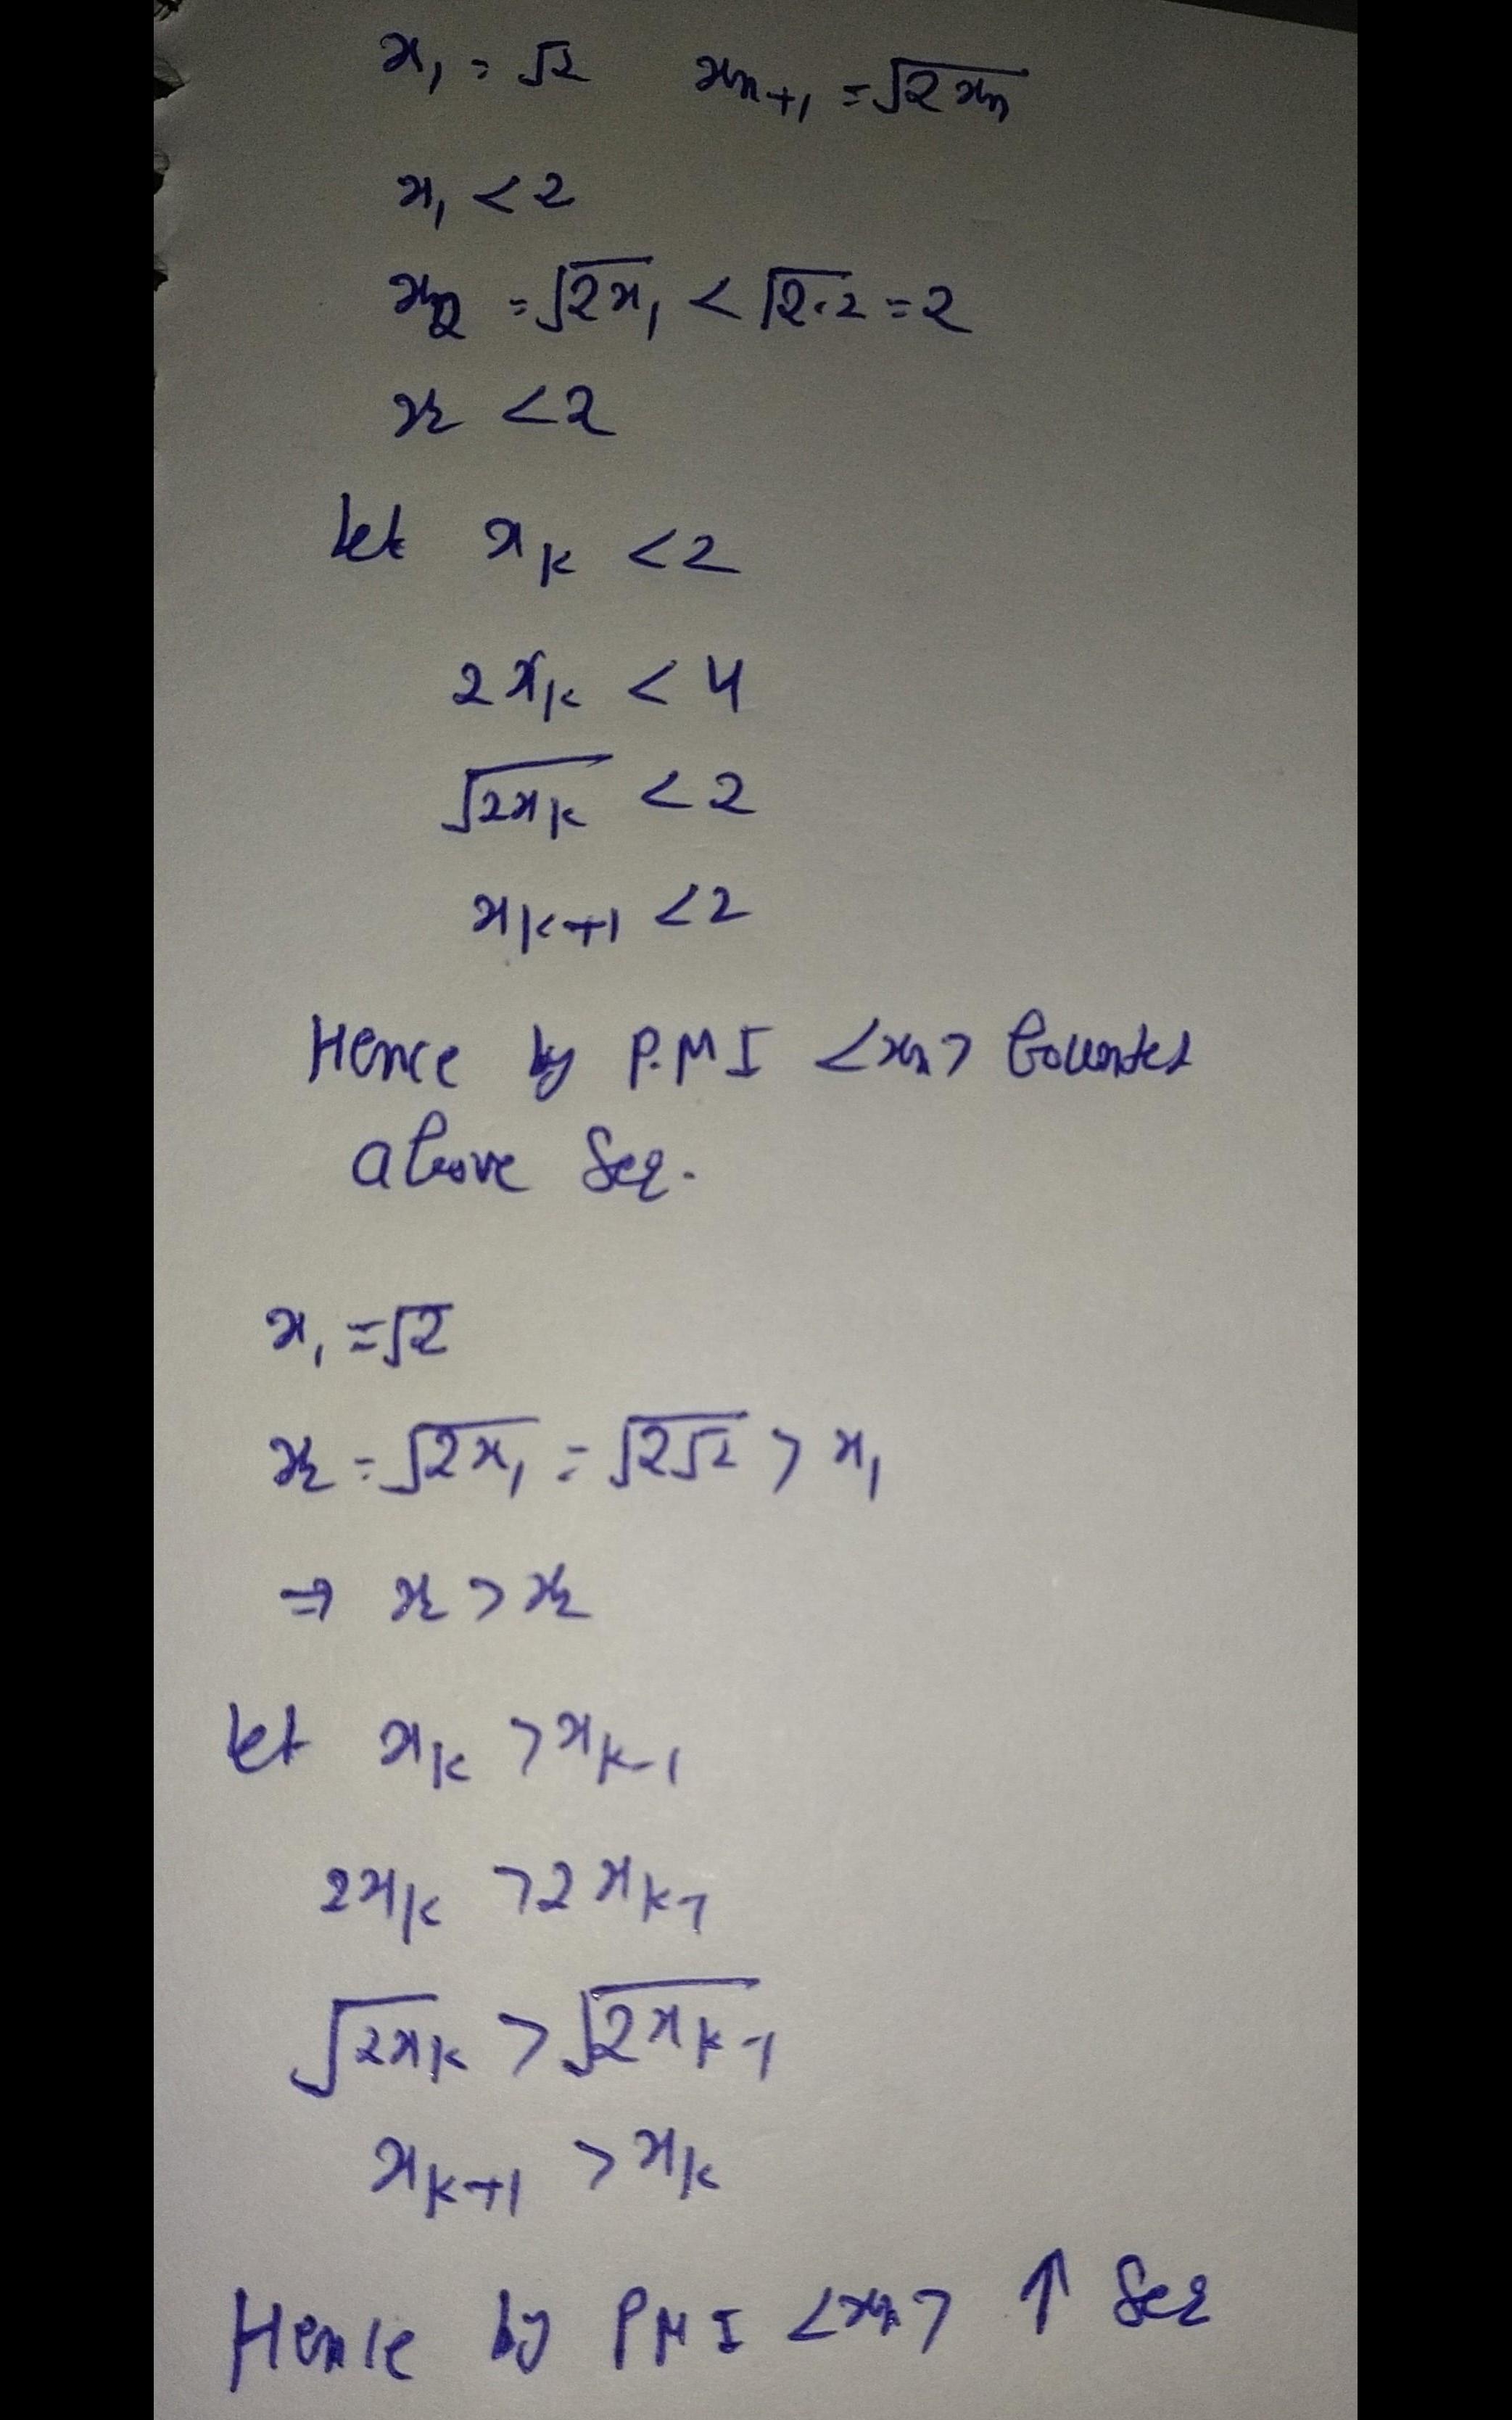 x₁ = √2 xₙ₊₁ = √(2xₙ)
x₁ < 2
x₂ = √(2x₁) < √(2·2) = 2
x₂ < 2
let x_k < 2
2x_k < 4
√(2x_k) < 2
x_k+1 < 2
Hence by P.M I <xₙ> bounded
above Seq.
x₁ = √2
x₂ = √(2x₁) = √(2√2) > x₁
⇒ x₂ > x₂
let x_k > x_k-1
2x_k > 2x_k-1
√(2x_k) > √(2x_k-1)
x_k+1 > x_k
Hence by PMI <xₙ> ↑ Seq